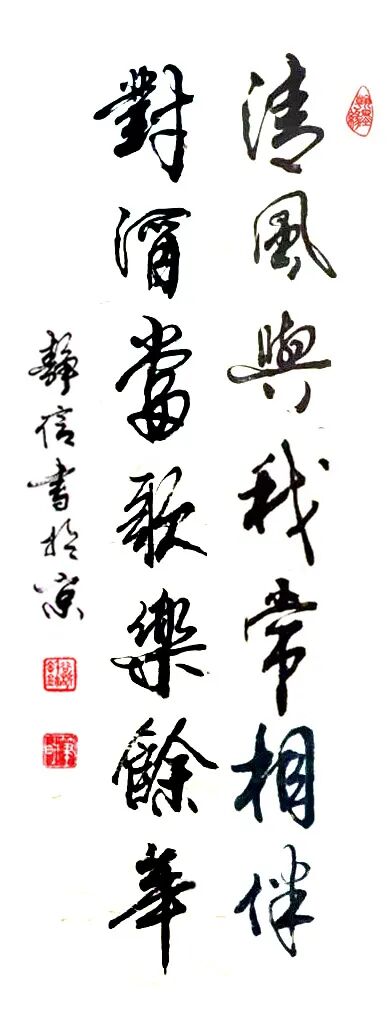 清風與我常相伴
對酒當歌樂餘華
靜信書於京